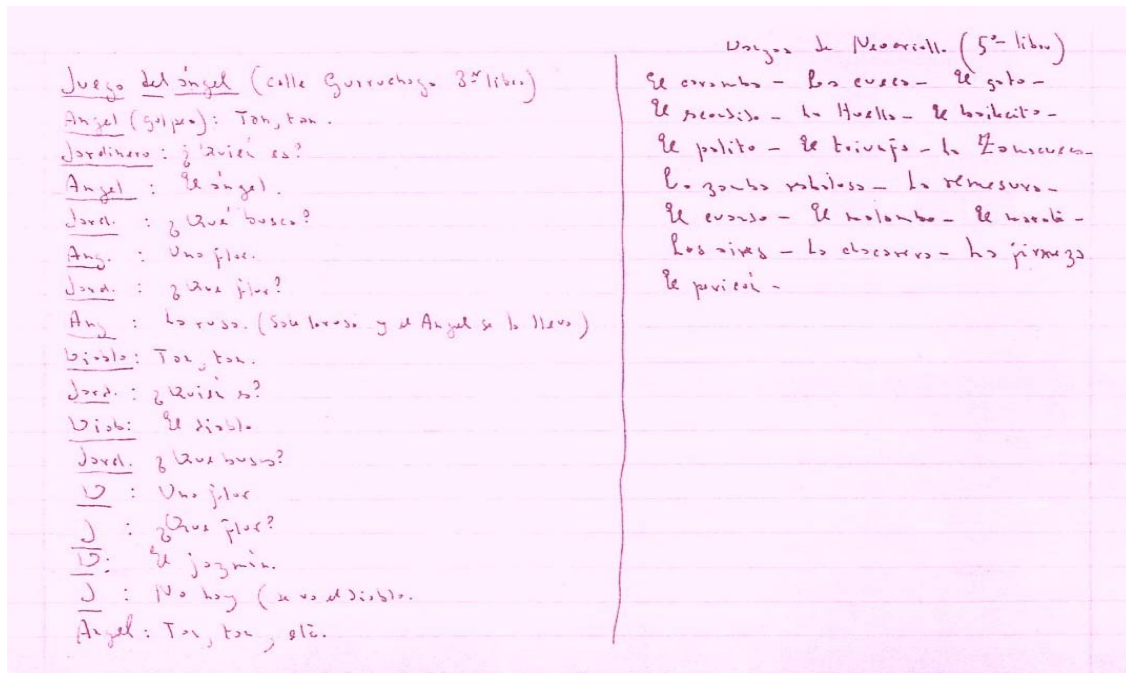 Juego del ángel (calle Gurruchaga 3er libro)
Angel (golpea): Tan, tan.
Jardinero: ¿Quién es?
Angel : El ángel.
Jard. : ¿Qué busca?
Ang. : Una flor.
Jard. : ¿Que flor?
Ang : La rosa. (Sale la rosa y el Angel se la lleva)
Diablo: Tan, tan.
Jard. : ¿Quién es?
Diab: El diablo
Jard. ¿Que busca?
D : Una flor
J : ¿Que flor?
D: El jazmín.
J : No hay (se va el diablo.
Angel: Tan, tan, etc.
de (5º- libro)
El caramba - La cueca - El gato -
El escondido - La Huella - El bailecito -
El palito - El triunfo - La Zamacueca -
La zamba - La remesura -
El cuando - El malambo - El marote -
Los aires - La chacarera - La firmeza
El pericón -